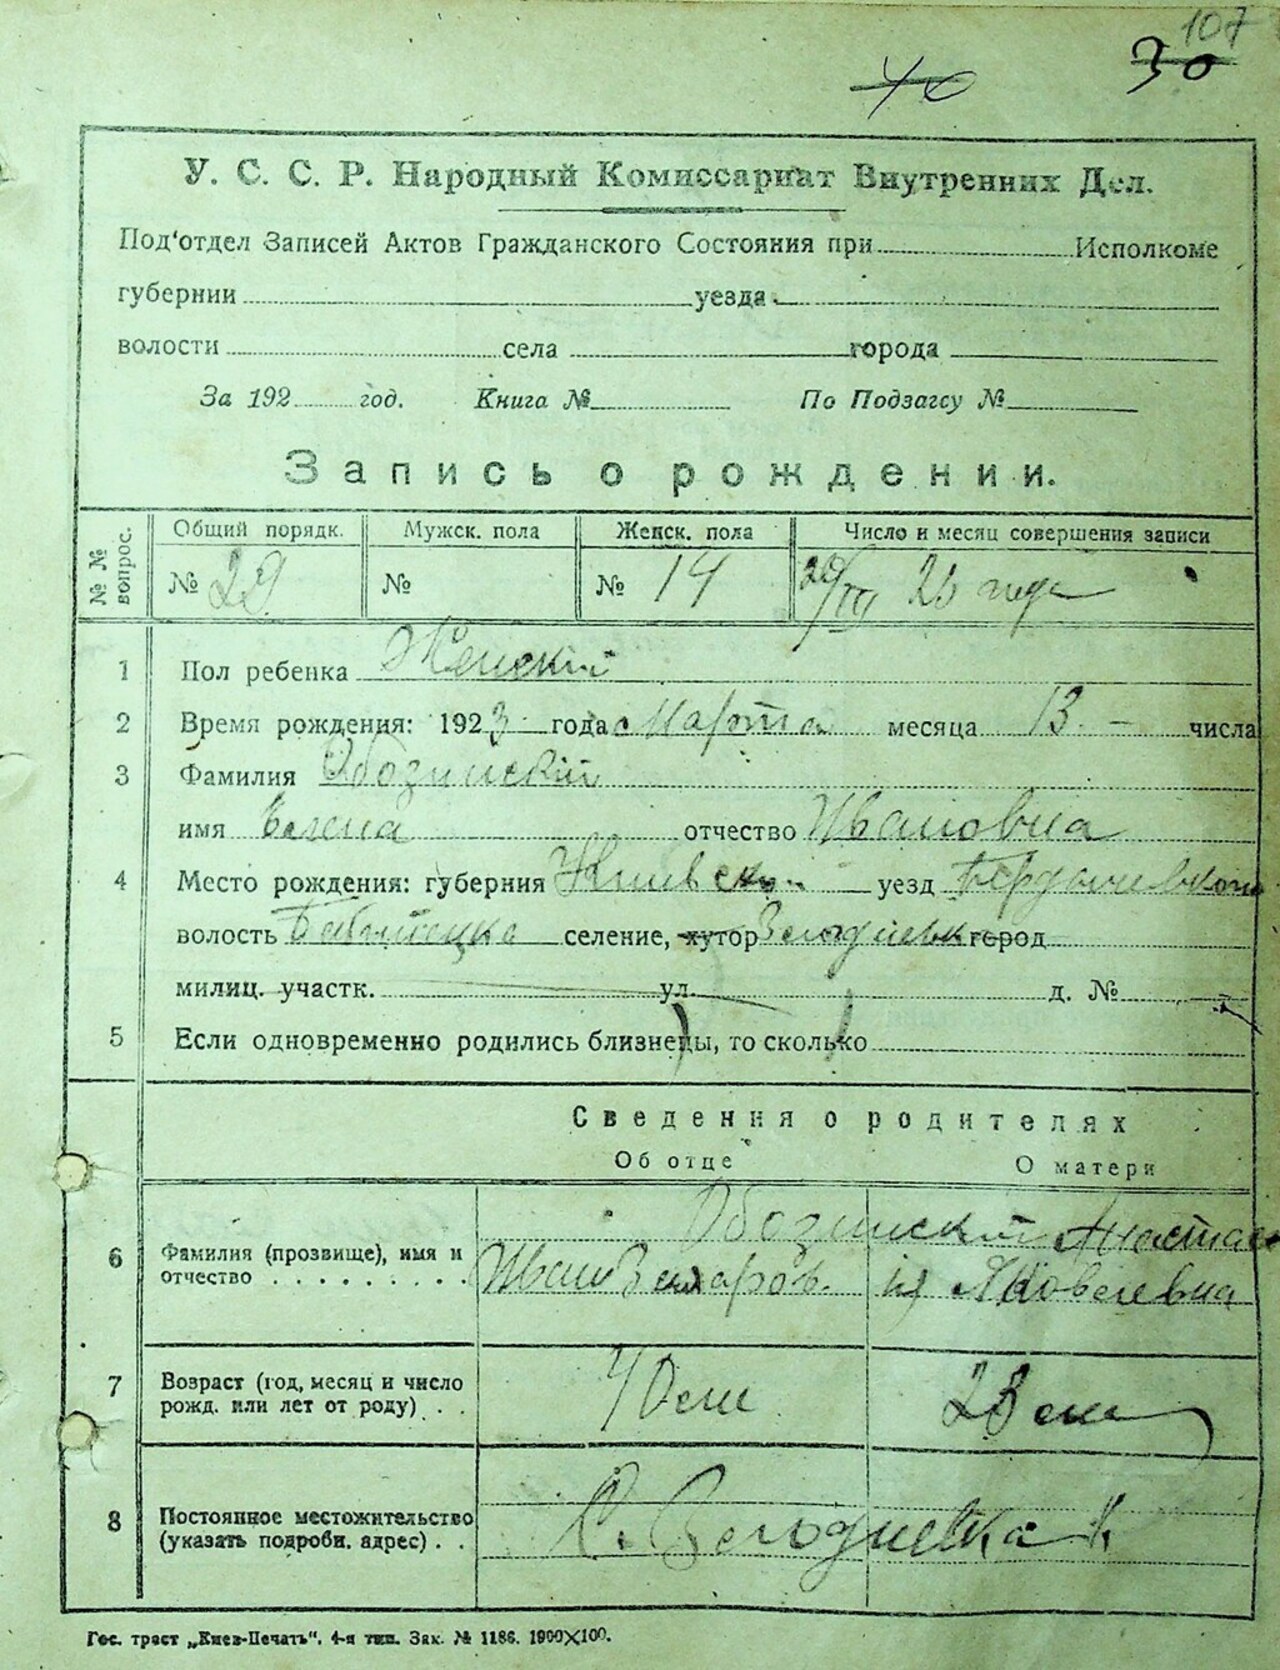 107
40
30
У. С. С. Р. Народный Комиссариат Внутренних Дел.
Под'отдел Записей Актов Гражданского Состояния при Исполкоме
губернии уезда
волости села города
За 192 год. Книга № По Подзагсу №
Запись о рождении.
№ № вопрос. Общий порядк. Мужск. пола Женск. пола Число и месяц совершения записи
№ 29 № № 14 20/III 23 года
1 Пол ребенка Женский
2 Время рождения: 1923 года Марта месяца 13 – числа
3 Фамилия Ободзинский
имя Елена отчество Ивановна
4 Место рождения: губерния Киевско уезд Бердичевского
волость селение, хутор город
милиц. участк. ул. д. №
5 Если одновременно родились близнецы, то сколько
Сведения о родителях
Об отце О матери
6 Фамилия (прозвище), имя и отчество Ободзинский Иван Захаров. Анастасия Яковлевна
7 Возраст (год, месяц и число рожд. или лет от роду) 40 лет 23 лет
8 Постоянное местожительство (указать подробн. адрес) С.
Гос. трест „Киев-Печать". 4-я тип. Зак. № 1186. 1900×100.